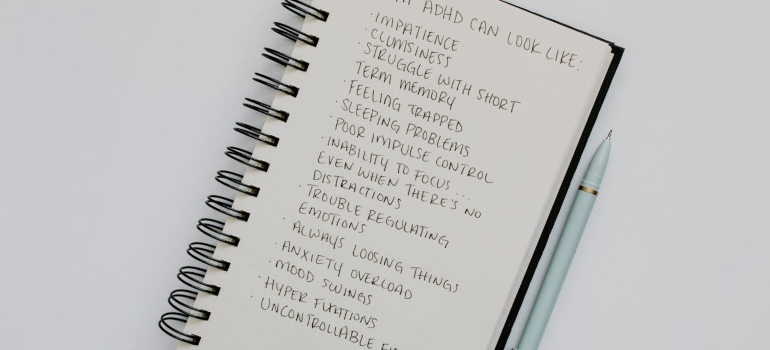 ADHD CAN LOOK LIKE:
· IMPATIENCE
· CLUMSINESS
· STRUGGLE WITH SHORT
TERM MEMORY
· FEELING TRAPPED
· SLEEPING PROBLEMS
· POOR IMPULSE CONTROL
· INABILITY TO FOCUS ...
EVEN WHEN THERE'S NO
DISTRACTIONS
· TROUBLE REGULATING
EMOTIONS
· ALWAYS LOOSING THINGS
· ANXIETY OVERLOAD
· MOOD SWINGS
· HYPER FIXATIONS
· UNCONTROLLABLE